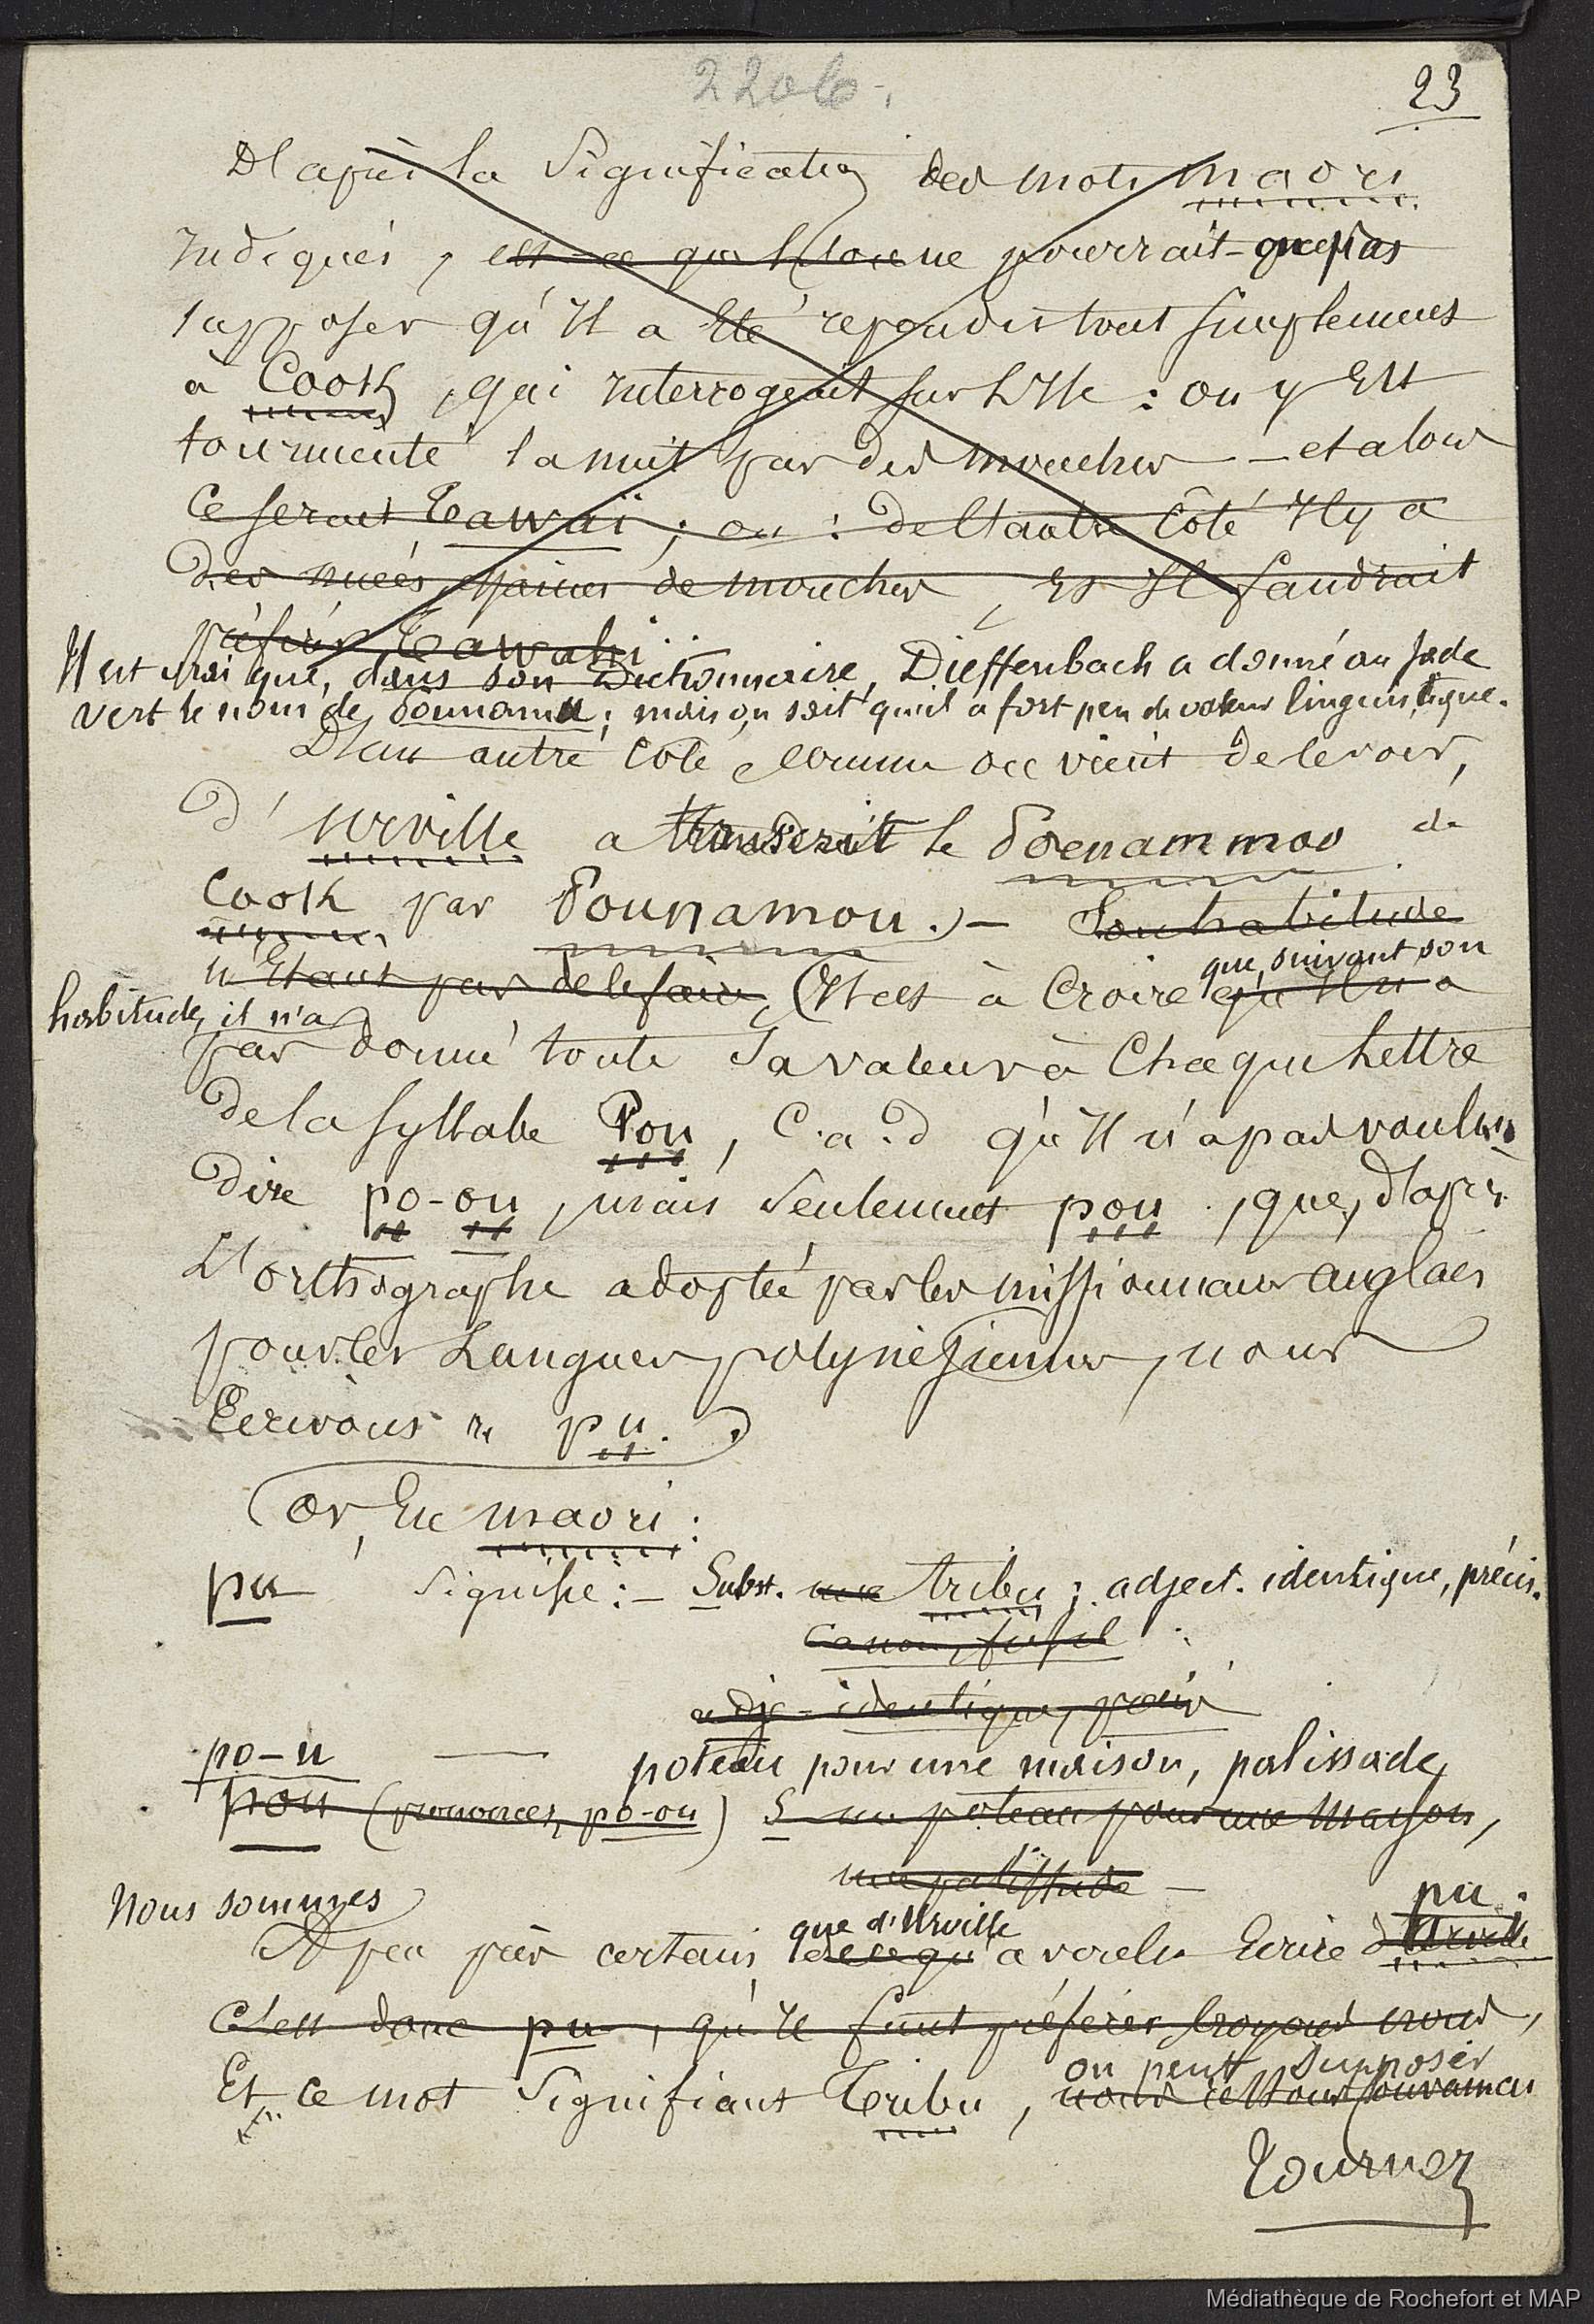 2206.
23
D'après la Signification des mots maori
Indiqués, est-ce qu'on ne pourrait-que pas
supposer qu'Il a Eté répondu tout simplement
à Cook, qui interrogeait sur l'Ile : on y Est
tourmenté la nuit par des mouches — et alors
Ce serait Tawaï ; ou : de l'autre Côté Il y a
des nuées de mouches, Et Il faudrait
préférer Tawahi.
Il est vrai que, dans son Dictionnaire, Dieffenbach a donné au Jade
vert le nom de Pounamu ; mais on sait qu'il a fort peu de valeur linguistique.
D'un autre Côté, Comme on vient de le voir,
d'Urville a transcrit le Poenammoo de
Cook par Pounamou. — Son habitude
n'Etant pas de le faire, Il est à Croire qu'Il n'a
que, suivant son
habitude, il n'a
pas donné toute sa valeur à Chaque Lettre
de la syllabe Pou, C.a.d qu'Il n'a pas voulu
dire po-ou, mais seulement pou, que, d'après
L'orthographe adoptée par les missionnaires anglais
pour les Langues polynésiennes, nous
Ecrivons pu.
Or, En maori :
pu signifie : — Subst. une tribu ; adject. identique, précis.
Canon, fusil
adj - identique, précis
po-u — poteau pour une maison, palissade,
pou (prononcez, po-ou) S un poteau pour une maison,
une palissade —
Nous sommes
A peu près certains que d'Urville a voulu Ecrire d'Urville
pu.
C'est donc pu, qu'Il faut préférer croyons nous,
Et ce mot signifiant Tribu, on peut supposer
nous
Tournez
Médiathèque de Rochefort et MAP